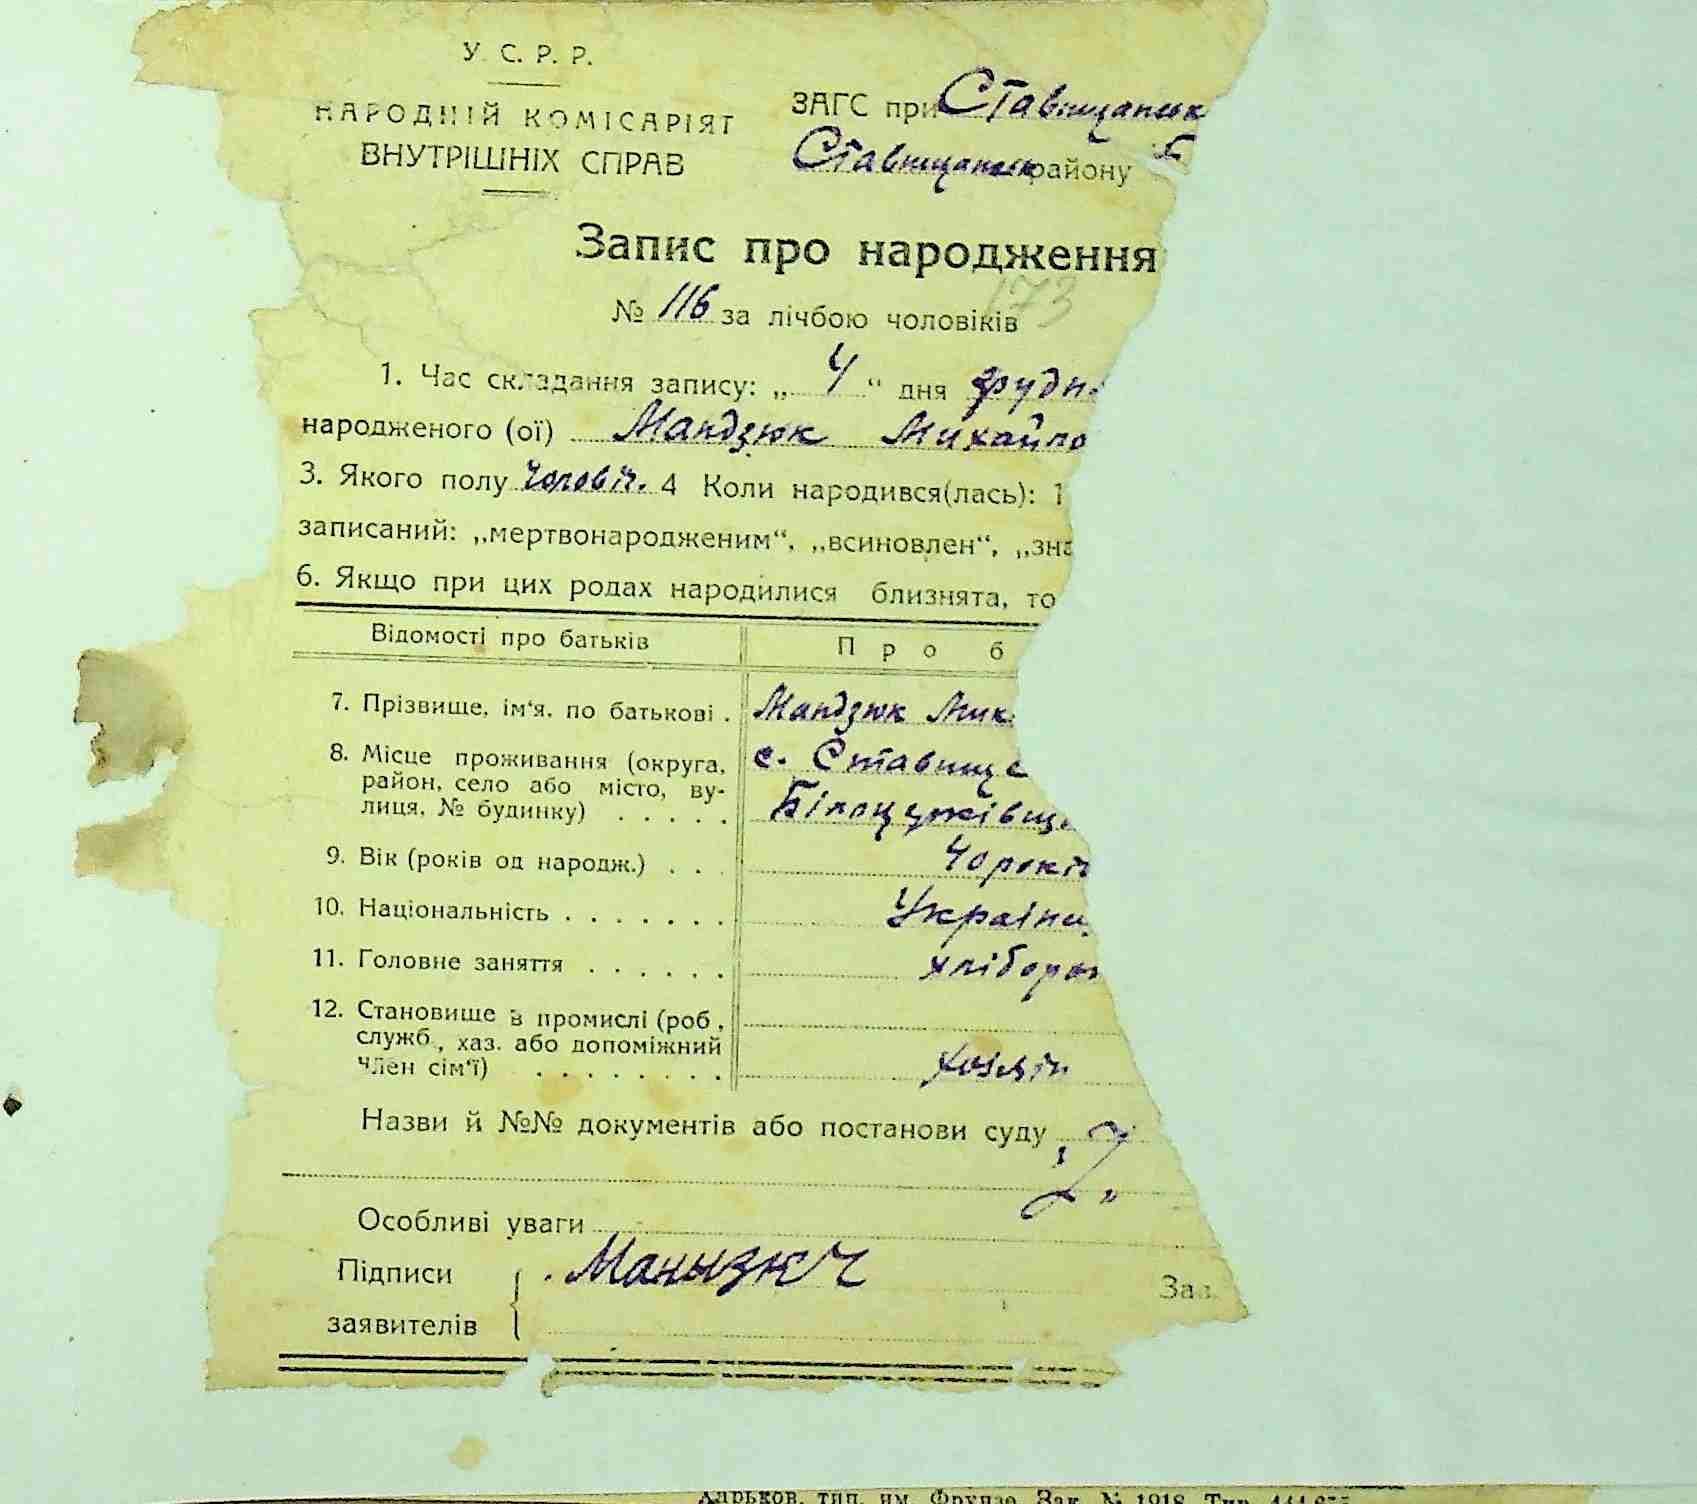 У.С.Р.Р.
НАРОДНІЙ КОМІСАРІЯТ
ВНУТРІШНІХ СПРАВ
ЗАГС при Ставищанськ
Ставищанськ району
Запис про народження
173
№ 116 за лічбою чоловіків
1. Час складання запису: „ 4 “ дня грудн
народженого (ої) Мандзюк Михайло
3. Якого полу чоловіч. 4 Коли народився(лась): 1
записаний: „мертвонародженим“, „всиновлен“, „зна
6. Якщо при цих родах народилися близнята, то
Відомості про батьків
Про б
7. Прізвище, ім‘я, по батькові . Мандзюк Мик
8. Місце проживання (округа, с. Ставище
район, село або місто, ву-
лиця, № будинку) . . . . . Білоцерківщ
9. Вік (років од народж.) . . . 40 років
10. Національність . . . . . . . Україн
11. Головне заняття . . . . . . хлібороб
12. Становище в промислі (роб.,
служб., хаз. або допоміжний
член сім‘ї) . . . . . . . . хозяїн
Назви й №№ документів або постанови суду
Особливі уваги
Підписи
заявителів
Зав.
Харьков, тип. им. Фрунзе. Зак. № 1918. Тир.